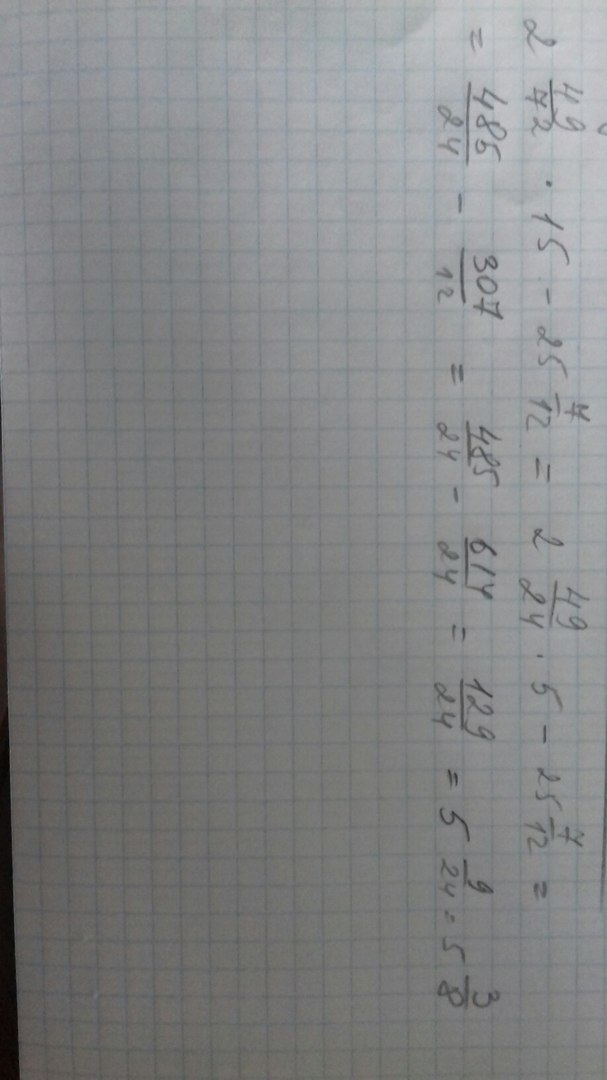 2 49/72 · 15 - 25 7/12 = 2 49/24 · 5 - 25 7/12 =
= 485/24 - 307/12 = 485/24 - 614/24 = 129/24 = 5 9/24 = 5 3/8